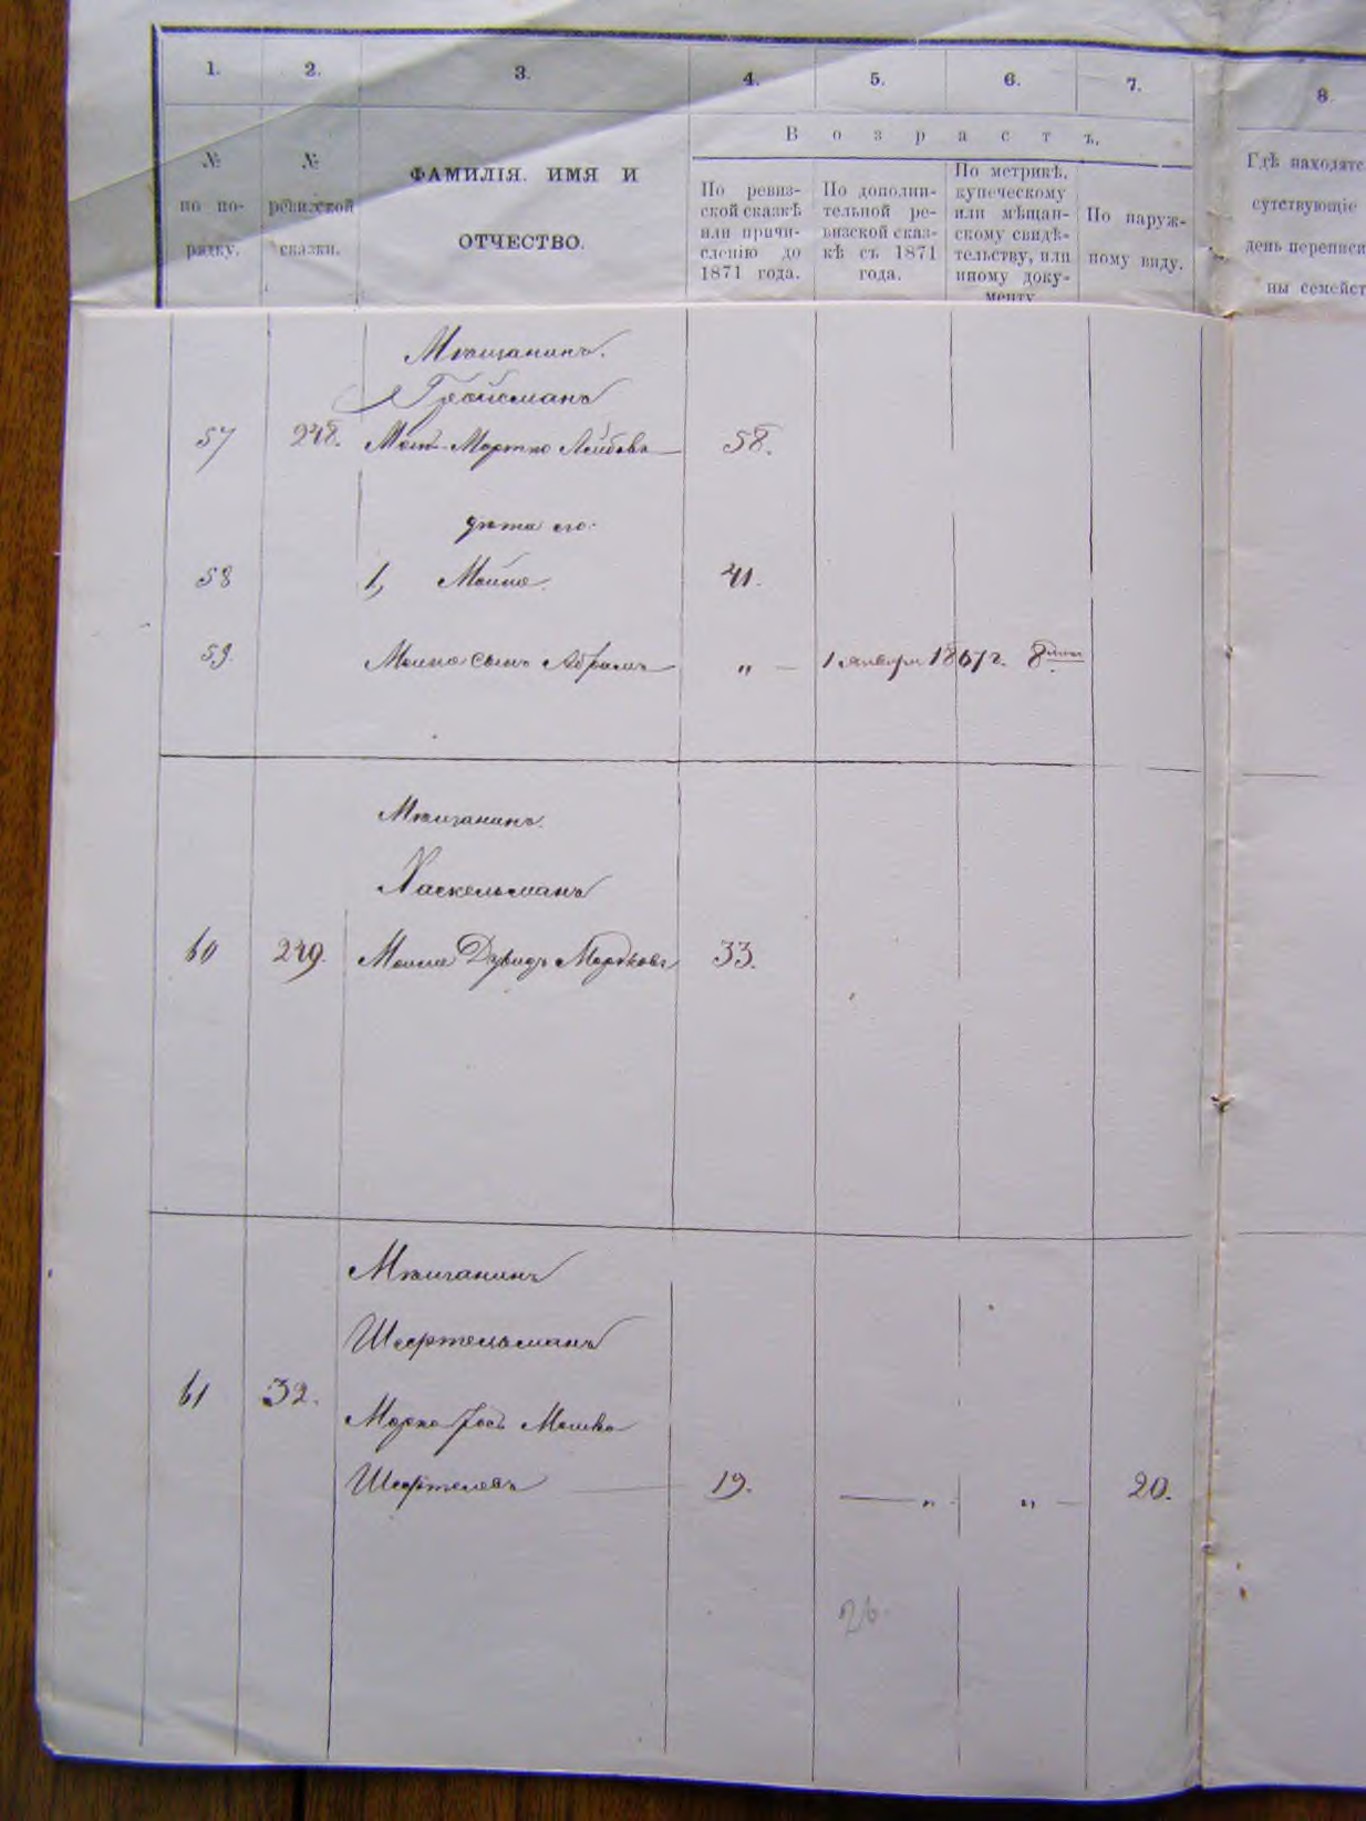 1. 2. 3. 4. 5. 6. 7. 8.
Возрастъ.
№ по порядку.
№ ревизской сказки.
ФАМИЛІЯ. ИМЯ И
ОТЧЕСТВО.
По ревиз-
ской сказкѣ
или причи-
сленію до
1871 года.
По дополни-
тельной ре-
визской сказ-
кѣ съ 1871
года.
По метрикѣ,
купеческому
или мѣщан-
скому свидѣ-
тельству, или
иному доку-
менту
По наруж-
ному виду.
Гдѣ находятс
сутствующіе
день переписи
ны семейст
Мѣщанинъ.
Гройсманъ
57 248. Мортко Лейбовъ 58.
дѣти его.
58 1, Мойше 41.
59. Мошко сынъ Абрамъ " 1 января 1867 г. 8
Мѣщанинъ.
Хаскельманъ
60 249. Мошке Дувидъ Мордковъ 33.
Мѣщанинъ
Шефтельманъ
61 32.
Мошко
Шефтелевъ 19. " " 20.
26.